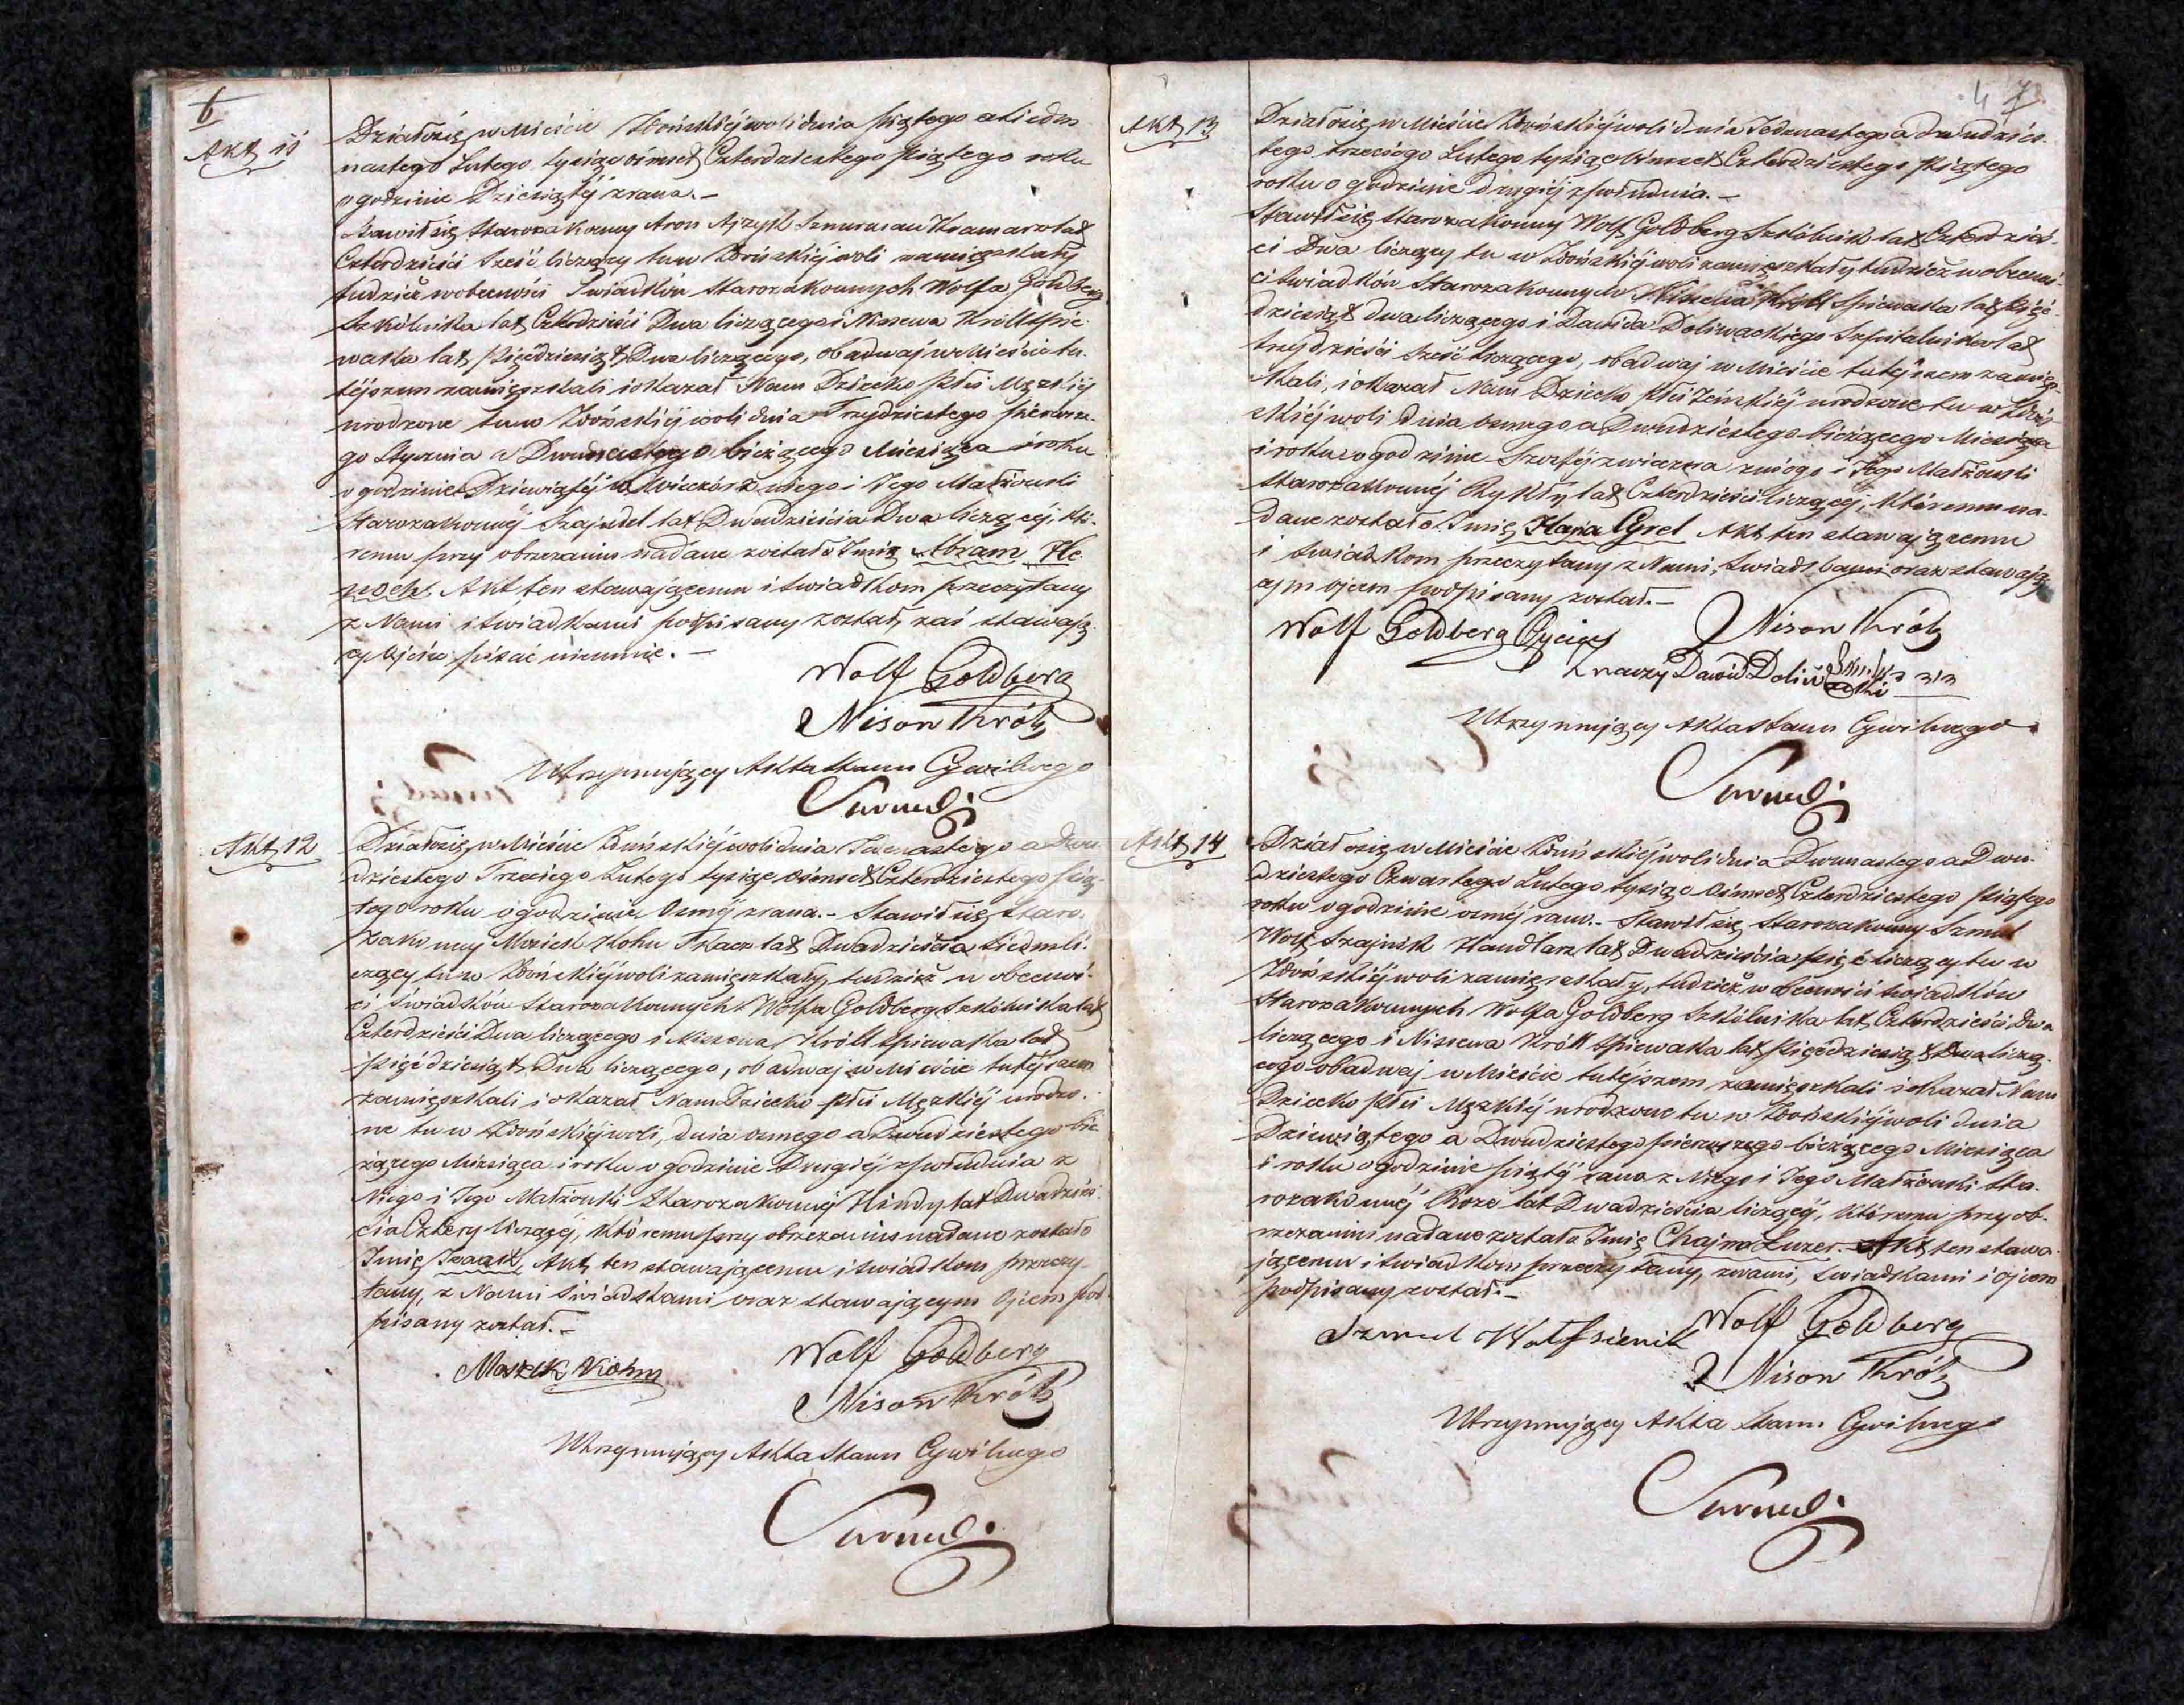 6
Akt 11
Działo się w Mieście Zduńskiéj woli dnia piątego a siedm
nastego Lutego tysiąc ośmset Czterdziestego piątego roku
o godzinie Dziesiątéj zrana.-
Stawił się Starozakonny Aron Ajzyk Kramarz lat
Czterdzieści sześć liczący tu w Zduńskiéj woli zamieszkały
tudzież w obecności Swiadków Starozakonnych Wolfa Goldberg
Szkólnika lat Czterdzieści Dwa liczącego i Nissena Króll Spie-
waka lat pięćdziesiąt Dwa liczącego, obadwaj w Mieście tu-
téjszem zamięszkali i okazał Nam Dziecko płci Męzkiéj
urodzone tu w Zduńskiéj woli dnia Trzydziestego pierwsze-
go Stycznia a Dwunastego bieżącego Miesiąca i roku
o godzinie Dziewiątéj w wieczór z niego i Jego Małżonki
Starozakonnéj Szajndel lat Dwadzieścia Dwa liczącéj, Któ-
remu przy obrzezaniu nadane zostało Imię Abram He-
noch. Akt ten stawającemu i świadkom przeczytany
z Nami i świadkami podpisany został, zaś stawają-
cy Ojciec pisać nieumie.-
Wolf Goldberg
Nison Król
Utrzymujący Akta Stanu Cywilnego
Akt 12
Działo się w Mieście Zduńskiéj woli dnia Jedenastego a Dwu-
dziestego Trzeciego Lutego tysiąc ośmset Czterdziestego pią-
tego roku o godzinie Osméj zrana.- Stawił się Staro-
zakonny Mosiek Kohn Tkacz lat Dwadzieścia siedm li-
czący tu w Zduńskiéj woli zamięszkały, tudzież w obecnoś-
ci świadków Starozakonnych Wolfa Goldberg Szkólnika lat
Czterdzieści Dwa liczącego i Nissena Króll Spiewaka lat
pięćdziesiąt Dwa liczącego, obadwaj w Mieście tutéjszem
zamięszkali i okazał Nam Dziecko płci Męzkiéj urodzo-
ne tu w Zduńskiéj woli, dnia osmego a Dwudziestego bie-
żącego Miesiąca i roku o godzinie Drugiéj z południa z
Niego i Jego Małżonki Starozakonnéj Hindy lat Dwadzieś-
cia Cztery liczącéj, któremu przy obrzezaniu nadano zostało
Imię Izaak, Akt ten stawającemu i świadkom przeczy-
tany, z Nami świadkami oraz stawającym Ojcem pod-
pisany został.-
Wolf Goldberg
Mosiek Kohn
Nison Król
Utrzymujący Akta Stanu Cywilnego
4 7
Akt 13
Działo się w Mieście Zduńskiéj woli dnia Jedenastego a dwudzies-
tego trzeciego Lutego tysiąc ośmset Czterdziestego piątego
roku o godzinie drugiéj z południa.-
Stawił się Starozakonny Wolf Goldberg Szkólnik lat Czterdzieś-
ci Dwa liczący tu w Zduńskiéj woli zamięszkały tudzież w obecnoś-
ci świadków Starozakonnych Nissena Króll Spiewaka lat pięć-
dziesiąt dwa liczącego i Dawida Doliwackiego Szpitalnika lat
trzydzieści sześć liczącego, obadwaj w Mieście tutéjszem zamięsz-
kali, i okazał Nam Dziecko płci Żeńskiéj urodzone tu w Zduń-
skiéj woli dnia osmego a Dwudziestego bieżącego Miesiąca
i roku o godzinie szóstéj z wieczora z niego i Jego Małżonki
Starozakonnéj Rykly lat Czterdzieści liczącéj, któremu na-
dane zostało Imię Hana Cyrel Akt ten stawającemu
i świadkom przeczytany z Nami, świadkami oraz stawają-
cym ojcem podpisany został.-
Wolf Goldberg Oyciec Nison Król
znaczy Dawid Doliwacki
Utrzymujący Akta Stanu Cywilnego
Akt 14
Działo się w Mieście Zduńskiéj woli dnia Dwunastego a Dwu-
dziestego Czwartego Lutego tysiąc Ośmset Czterdziestego piątego
roku o godzinie osméj rano.- Stawił się Starozakonny Szmul
Wolf Szajnik Handlarz lat Dwadzieścia pięć liczący tu w
Zduńskiéj woli zamięszkały, tudzież w obecności świadków
Starozakonnych Wolfa Goldberg Szkólnika lat Czterdzieści Dwa
liczącego i Nissena Króll Spiewaka lat pięćdziesiąt Dwa liczą-
cego obadwaj w Mieście tutejszem zamięszkali i okazał Nam
Dziecko płci Męzkiéj urodzone tu w Zduńskiéj woli dnia
Dziewiątego a Dwudziestego pierwszego bieżącego Miesiąca
i roku o godzinie piątéj rano z Niego i Jego Małżonki Sta-
rozakonnéj Roze lat Dwadzieścia liczącéj, któremu przy ob-
rzezaniu nadano zostało Imię Chajm Luzer.- Akt ten stawa-
jącemu i świadkom przeczytany, z nami, świadkami i ojcem
podpisany został.-
Szmul Wolf sienik Wolf Goldberg
Nison Król
Utrzymujący Akta Stanu Cywilnego